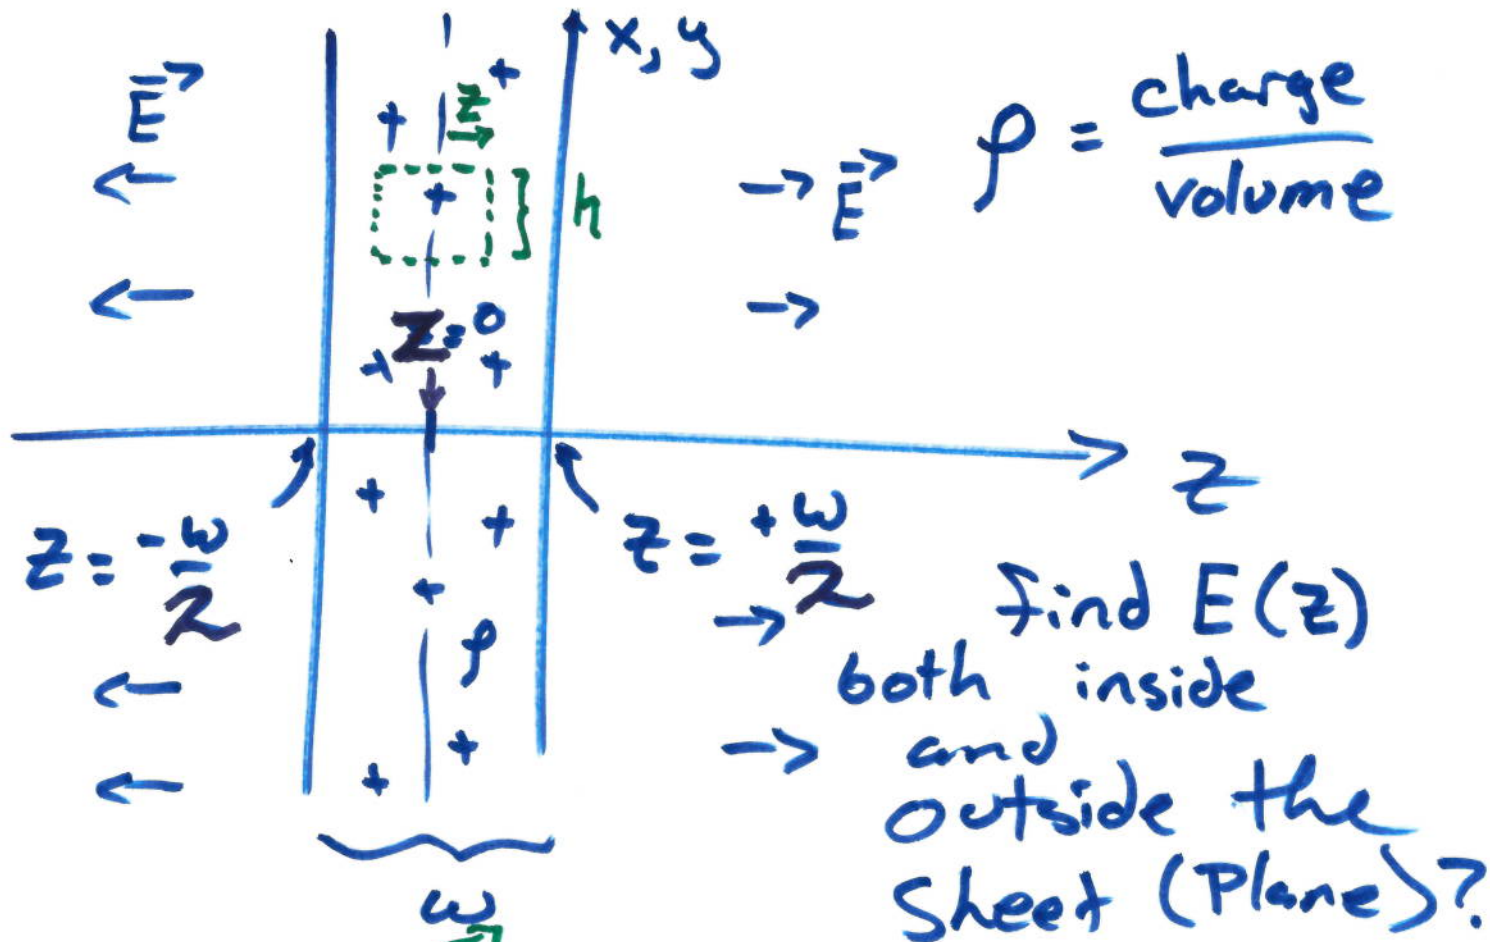 x, y
E
z
h
E
ρ = charge / volume
z = 0
z
z = -w/2
z = +w/2
ρ
find E(z)
both inside
and
outside the
sheet (Plane)?
w